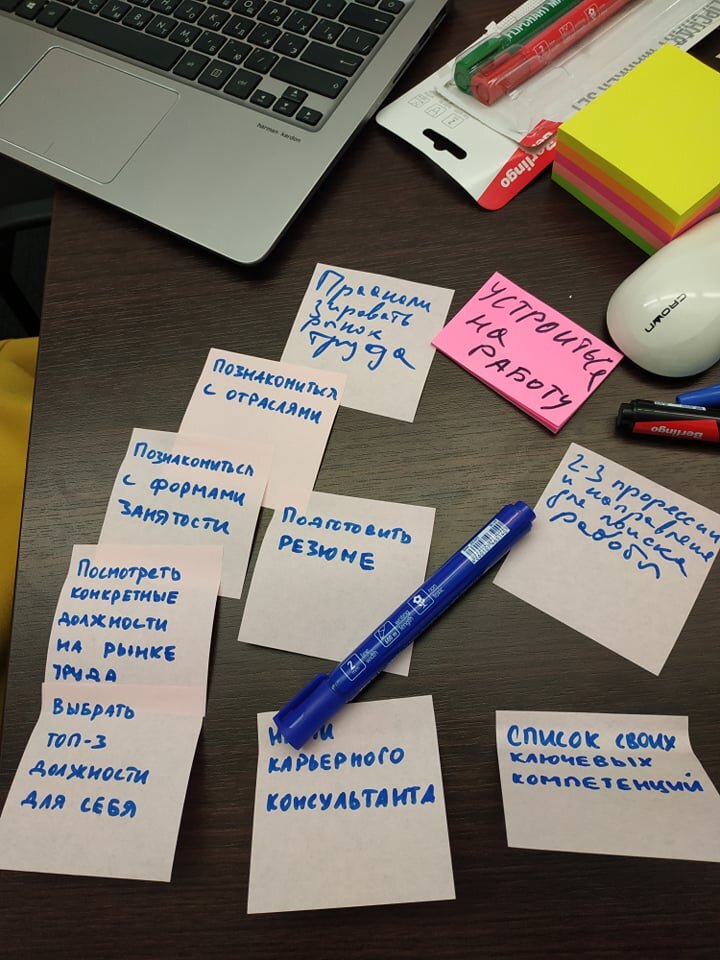 harman kardon
Berlingo
CROWN
Berlingo
Проанали
зировать
рынок
труда
УСТРОИТЬСЯ
НА
РАБОТУ
ПОЗНАКОМИТЬСЯ
С ОТРАСЛЯМИ
ПОЗНАКОМИТЬСЯ
С ФОРМАМИ
ЗАНЯТОСТИ
ПОДГОТОВИТЬ
РЕЗЮМЕ
2-3 профессии
и направление
для поиска
работы
ПОСМОТРЕТЬ
КОНКРЕТНЫЕ
ДОЛЖНОСТИ
НА РЫНКЕ
ТРУДА
ВЫБРАТЬ
ТОП-3
ДОЛЖНОСТИ
ДЛЯ СЕБЯ
2 line width
writing length
non toxic
КАРЬЕРНОГО
КОНСУЛЬТАНТА
СПИСОК СВОИХ
КЛЮЧЕВЫХ
КОМПЕТЕНЦИЙ